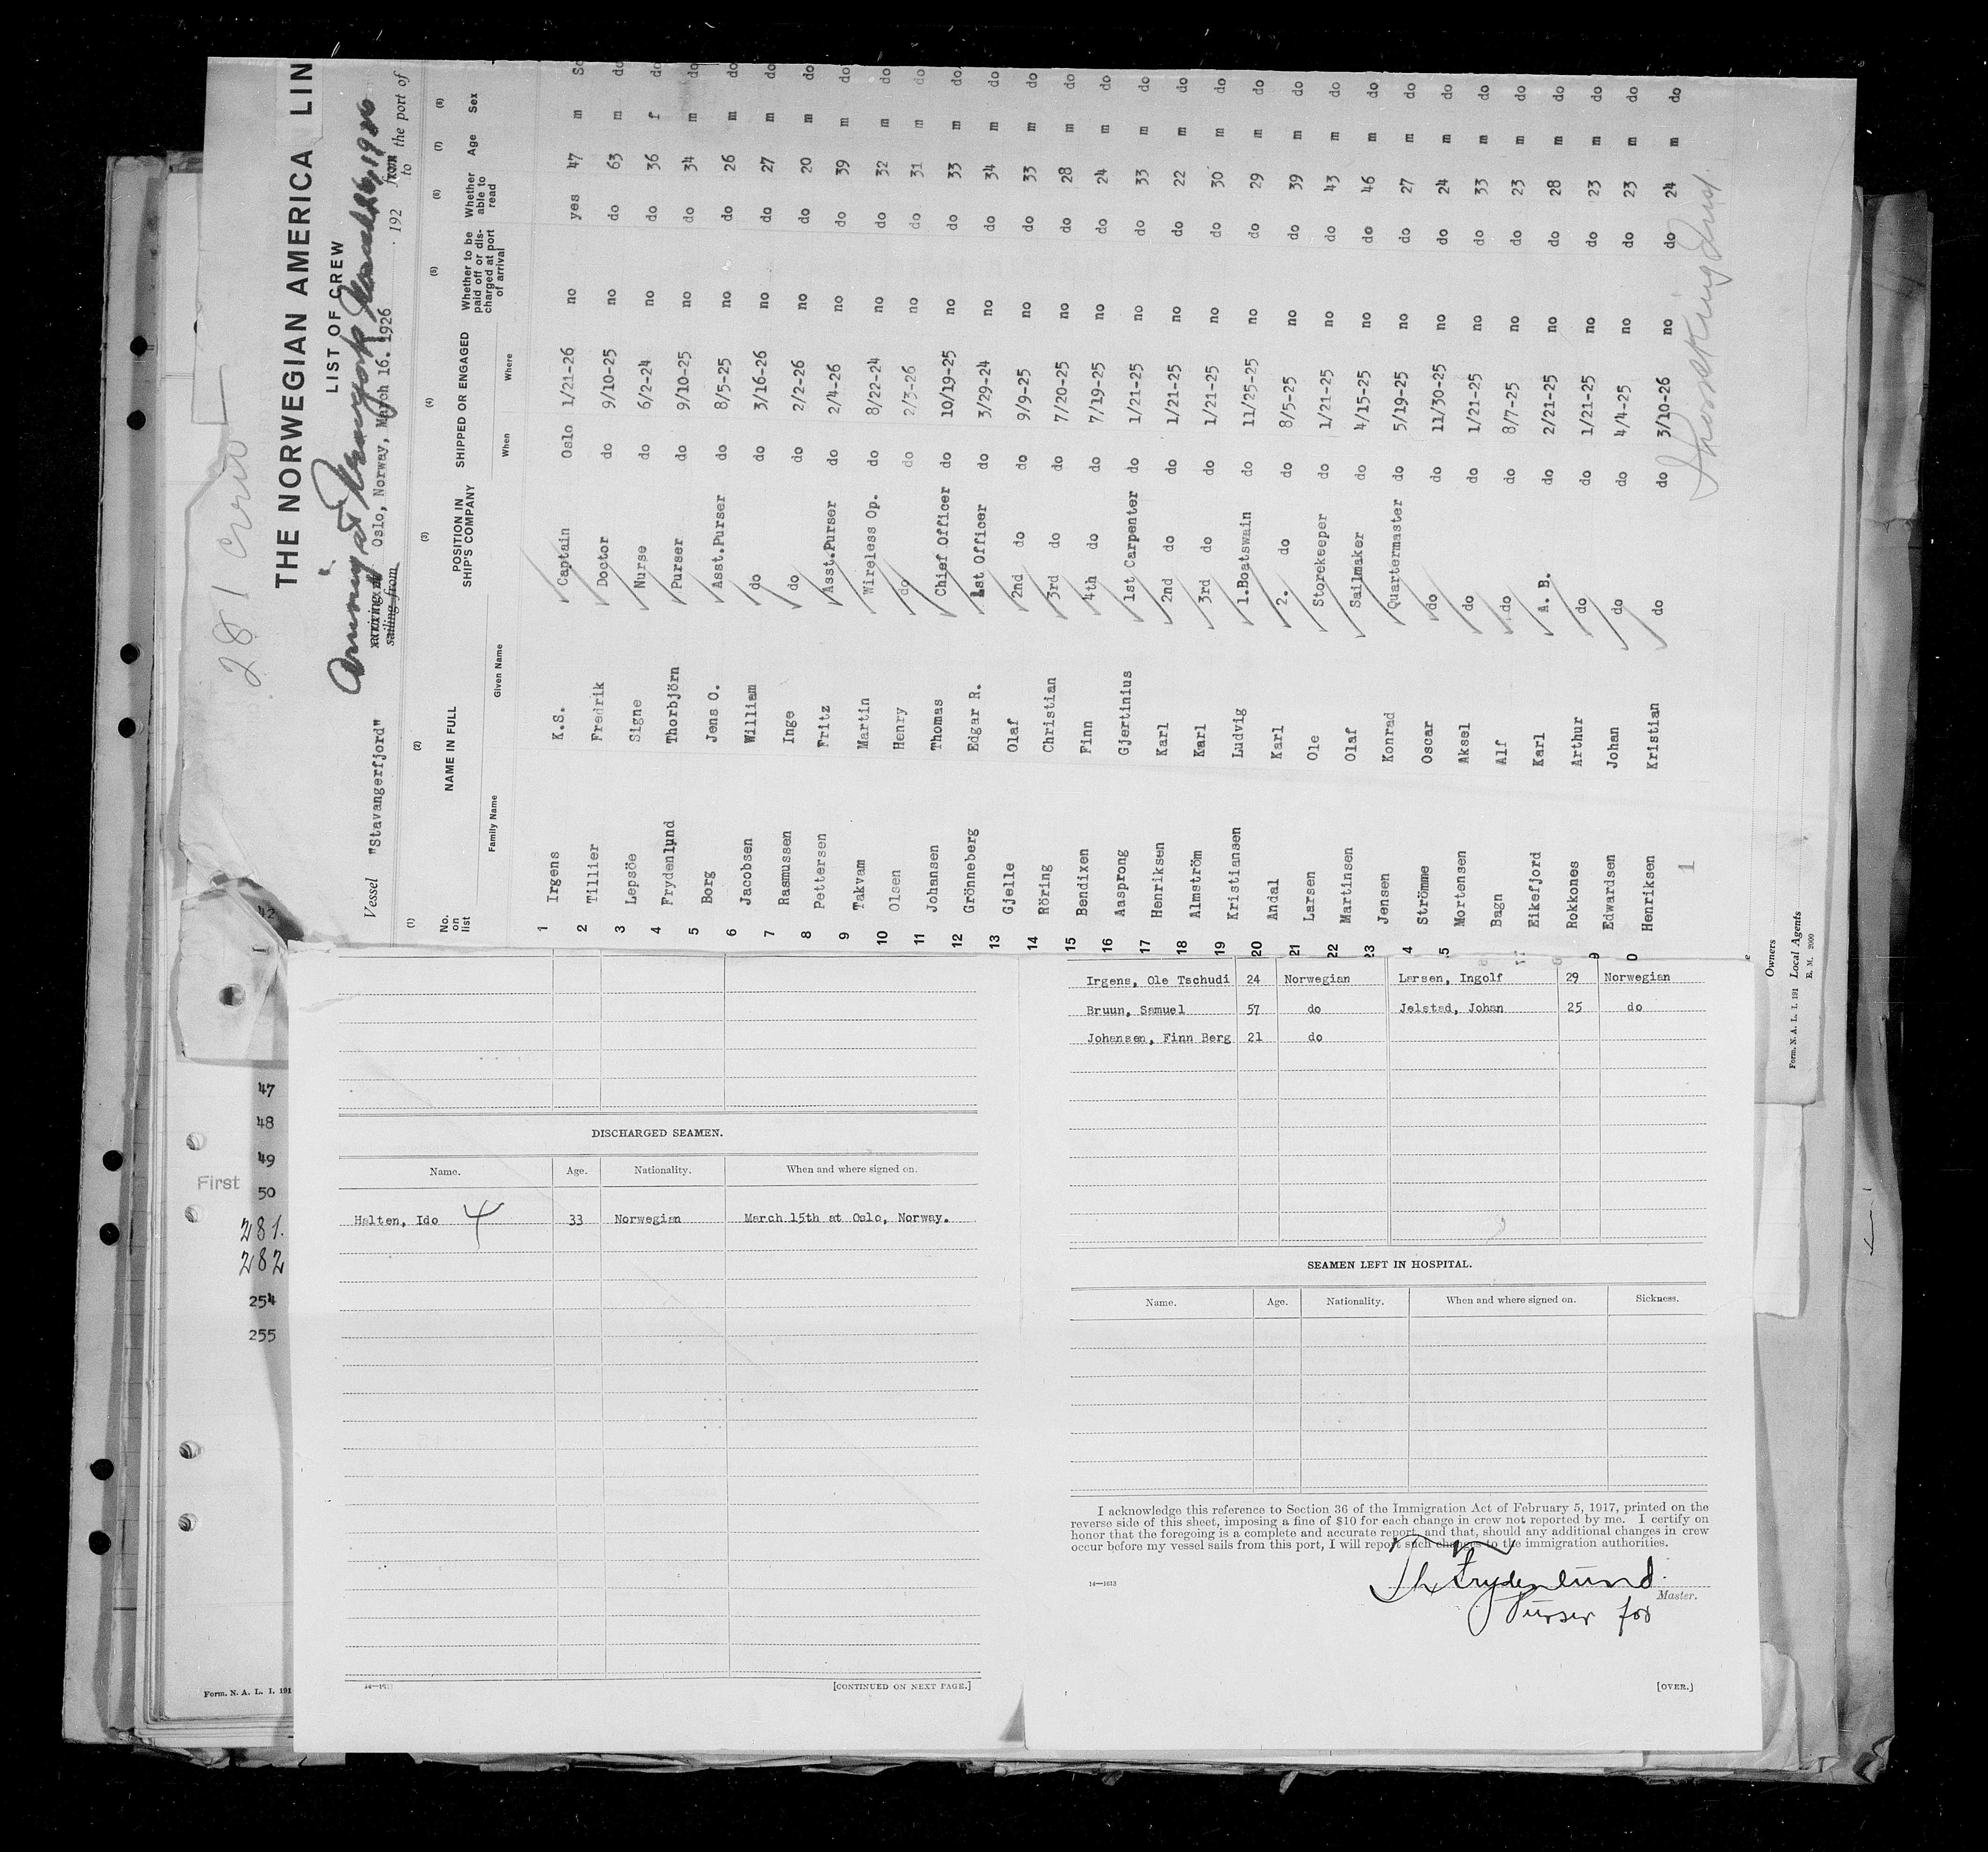 281 crew
THE NORWEGIAN AMERICA LIN
LIST OF CREW
Vessel "Stavangerfjord" arriving at sailing from Oslo, Norway, March 16. 1926 192 from to the port of
Arriving at New York March 26, 1926
(1) (2) (3) (4) (5) (6) (7) (8)
No. on list NAME IN FULL POSITION IN SHIP'S COMPANY SHIPPED OR ENGAGED Whether to be paid off or discharged at port of arrival Whether able to read Age Sex
Family Name Given Name When Where
1 Irgens K.S. Captain Oslo 1/21-26 no yes 47 m Sc
2 Tillier Fredrik Doctor do 9/10-25 no do 63 m do
3 Lepsöe Signe Nurse do 6/2-24 no do 36 f do
4 Frydenlund Thorbjörn Purser do 9/10-25 no do 34 m do
5 Borg Jens O. Asst.Purser do 8/5-25 no do 26 m do
6 Jacobsen William do do 3/16-26 no do 27 m do
7 Rasmussen Inge do do 2/2-26 no do 20 m do
8 Pettersen Fritz Asst.Purser do 2/4-26 no do 39 m do
9 Takvam Martin Wireless Op. do 8/22-24 no do 32 m do
10 Olsen Henry do do 2/3-26 no do 31 m do
11 Johansen Thomas Chief Officer do 10/19-25 no do 33 m do
12 Grönneberg Edgar R. 1st Officer do 3/29-24 no do 34 m do
13 Gjelle Olaf 2nd do do 9/9-25 no do 33 m do
14 Röring Christian 3rd do do 7/20-25 no do 28 m do
15 Bendixen Finn 4th do do 7/19-25 no do 24 m do
16 Aasprong Gjertinius 1st Carpenter do 1/21-25 no do 33 m do
17 Henriksen Karl 2nd do do 1/21-25 no do 22 m do
18 Almström Karl 3rd do do 1/21-25 no do 30 m do
19 Kristiansen Ludvig 1.Boatswain do 11/25-25 no do 29 m do
20 Andal Karl 2. do do 8/5-25 no do 39 m do
21 Larsen Ole Storekeeper do 1/21-25 no do 43 m do
22 Martinsen Olaf Sailmaker do 4/15-25 no do 46 m do
23 Jensen Konrad Quartermaster do 5/19-25 no do 27 m do
4 Strömme Oscar do do 11/30-25 no do 24 m do
5 Mortensen Aksel do do 1/21-25 no do 33 m do
Bagn Alf do do 8/7-25 no do 23 m do
Eikefjord Karl A.B. do 2/21-25 no do 28 m do
Rokkones Arthur do do 1/21-25 no do 23 m do
9 Edwardsen Johan do do 4/4-25 no do 23 m do
0 Henriksen Kristian do do 3/10-26 no do 24 m do
1
Owners
Local Agents
Form. N. A. L. I. 191 E. M. 2000
42
47
48
49
First 50
281.
282
254
255
Form. N. A. L. I. 191
DISCHARGED SEAMEN.
Name. Age. Nationality. When and where signed on.
Halten, Ido 4 33 Norwegian March 15th at Oslo, Norway.
[CONTINUED ON NEXT PAGE.]
Irgens, Ole Tschudi 24 Norwegian Larsen, Ingolf 29 Norwegian
Bruun, Samuel 57 do Jelstad, Johan 25 do
Johansen, Finn Berg 21 do
SEAMEN LEFT IN HOSPITAL.
Name. Age. Nationality. When and where signed on. Sickness.
I acknowledge this reference to Section 36 of the Immigration Act of February 5, 1917, printed on the
reverse side of this sheet, imposing a fine of $10 for each change in crew not reported by me. I certify on
honor that the foregoing is a complete and accurate report, and that, should any additional changes in crew
occur before my vessel sails from this port, I will report such changes to the immigration authorities.
14—1613
Th Frydenlund.
Master.
Purser for
[OVER.]